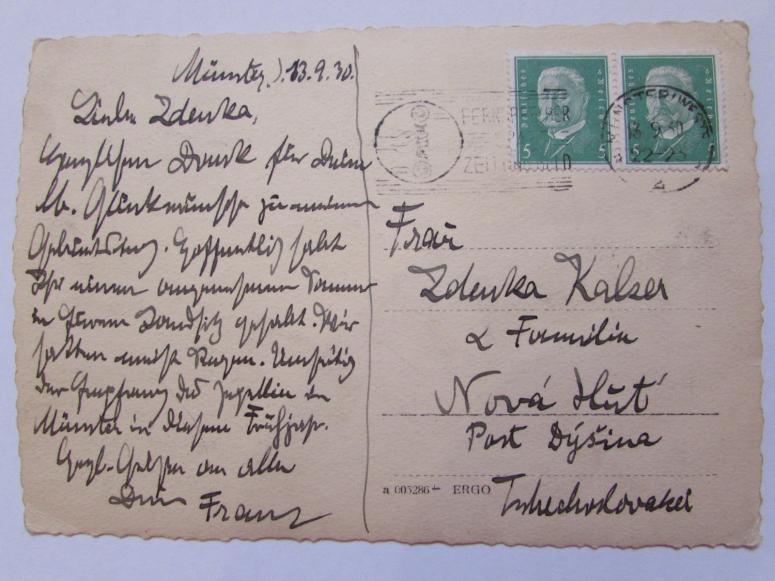 Münster, 13.9.30.
Liebe Zdenka,
herzlichen Dank für Deine
lb. Glückwünsche zu meinem
Geburtstag. Hoffentlich habt
Ihr einen angenehmen Sommer
in Eurem Landsitz gehabt. Wir
hatten meist Regen. Umseitig
der Empfang des Zeppelin in
Münster in diesem Frühjahr.
Herzl. Grüßen an alle
Dein
Franz
FERNSPRECHER
ZEIT UND GELD
DEUTSCHES REICH
5 5
DEUTSCHES REICH
5
MÜNSTER (WESTF)
13.9.30
22-23
2
Frau
Zdenka Kalser
& Familie
Nová Huť
Post Dýšina
Tschechoslovakei
a 005286 ERGO